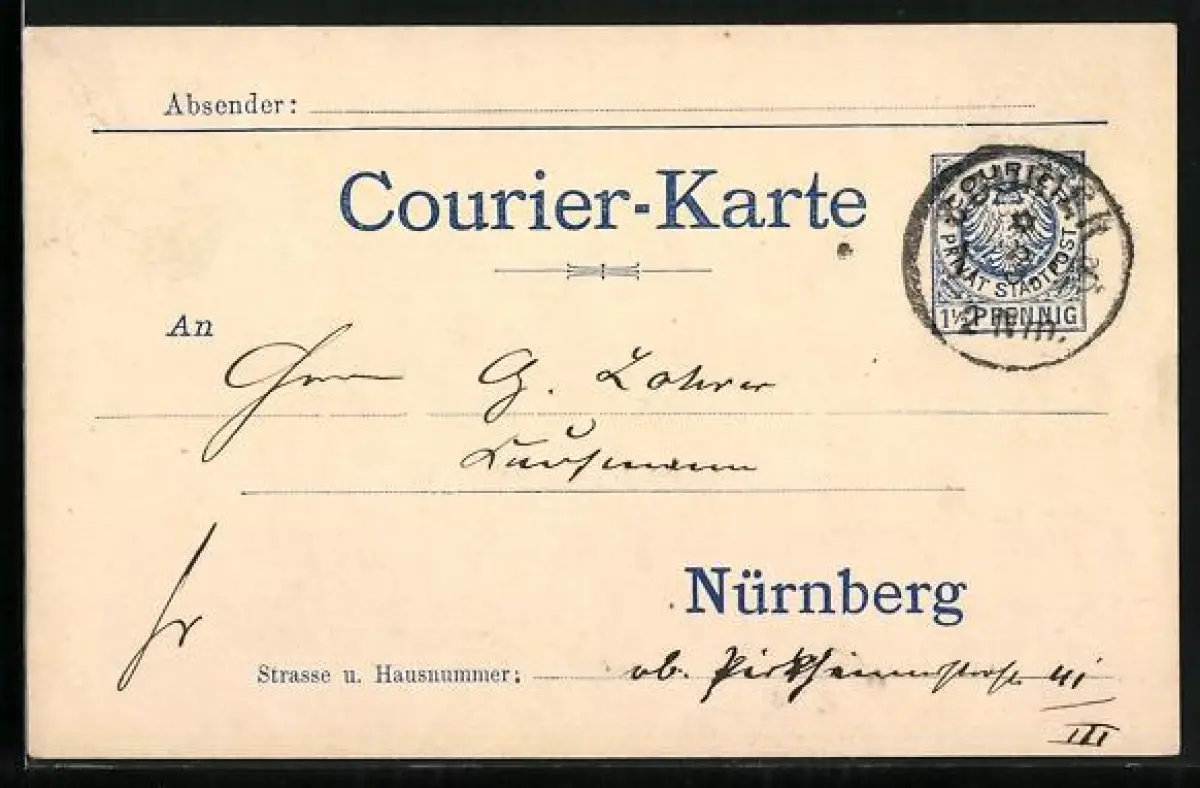 Absender:
Courier-Karte
COURIER
PRIVAT STADTPOST
1½ PFENNIG
An
Herrn G. Lohrer
Kaufmann
Nürnberg
fr
Strasse u. Hausnummer: ob. Pirkheimerstrasse
III